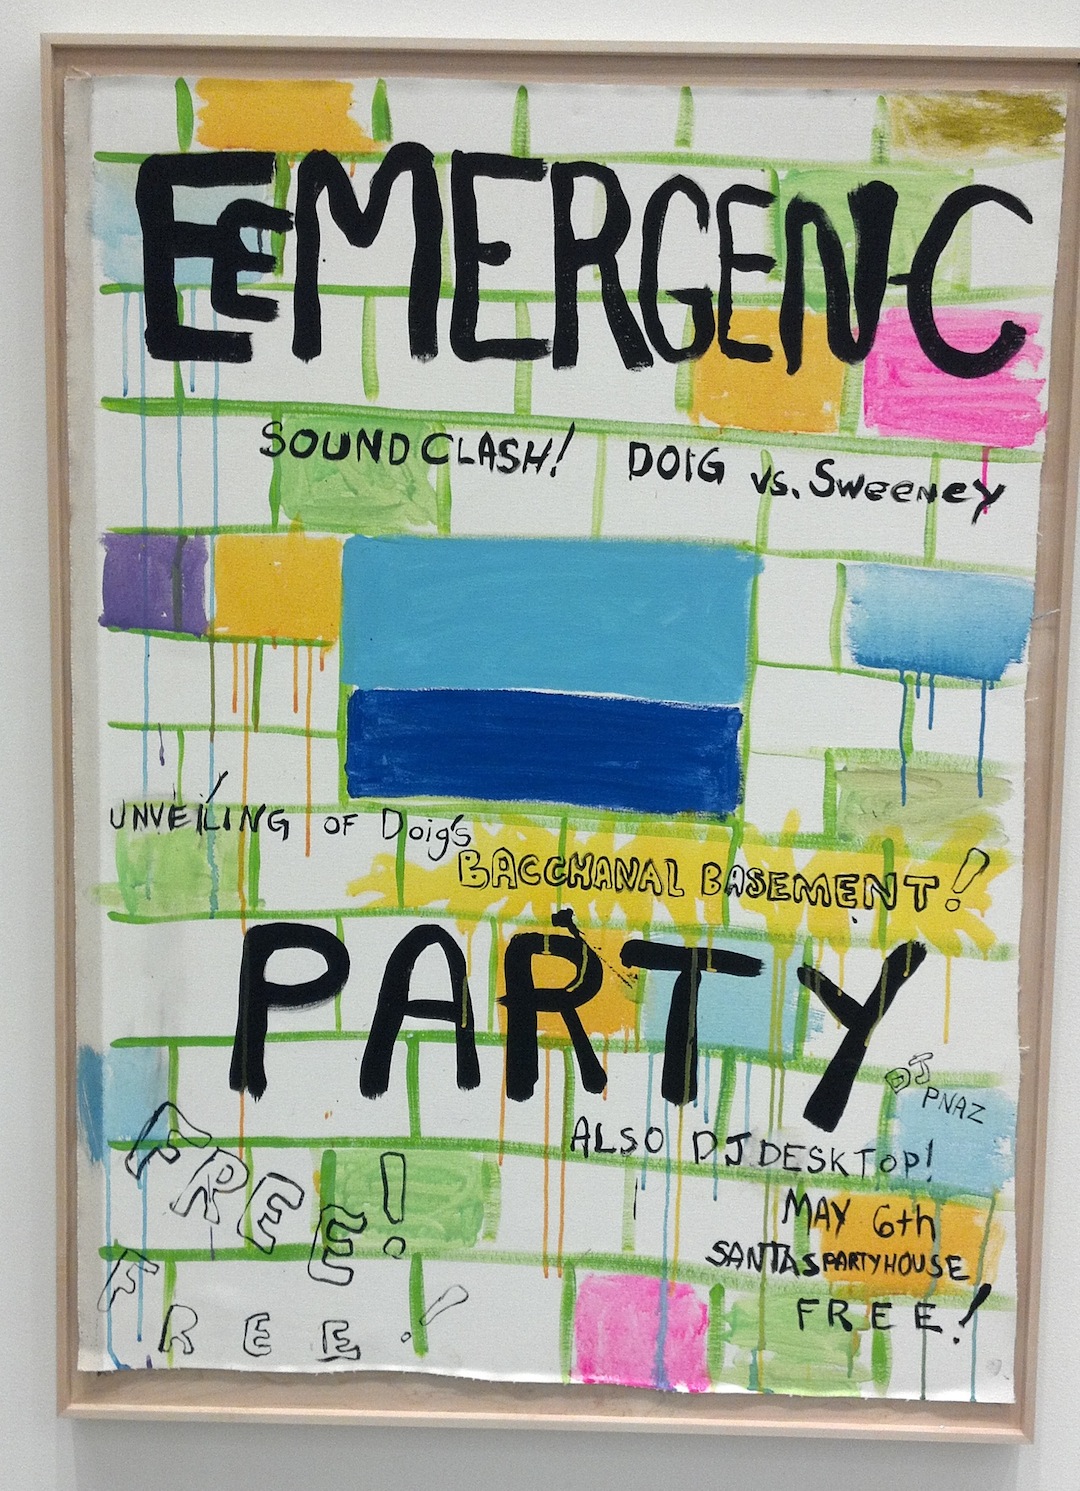 EEMERGENC
SOUNDCLASH! DOIG vs. Sweeney
UNVEILING OF Doig's
BACCHANAL BASEMENT!
PARTY
DJ
PNAZ
ALSO DJ DESKTOP!
MAY 6th
SANTAS PARTYHOUSE
FREE!
FREE!
FREE!